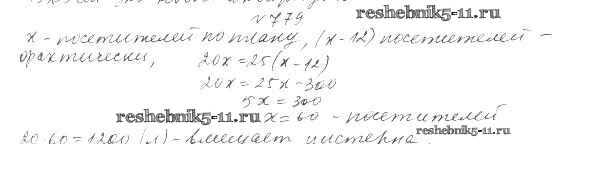 №779
reshebnik5-11.ru
x - посетителей по плану, (x-12) посетителей -
практически, 20x=25(x-12)
20x=25x-300
5x=300
reshebnik5-11.ru x=60 - посетителей
20·60=1200 (л) - вмещает цистерна.
reshebnik5-11.ru